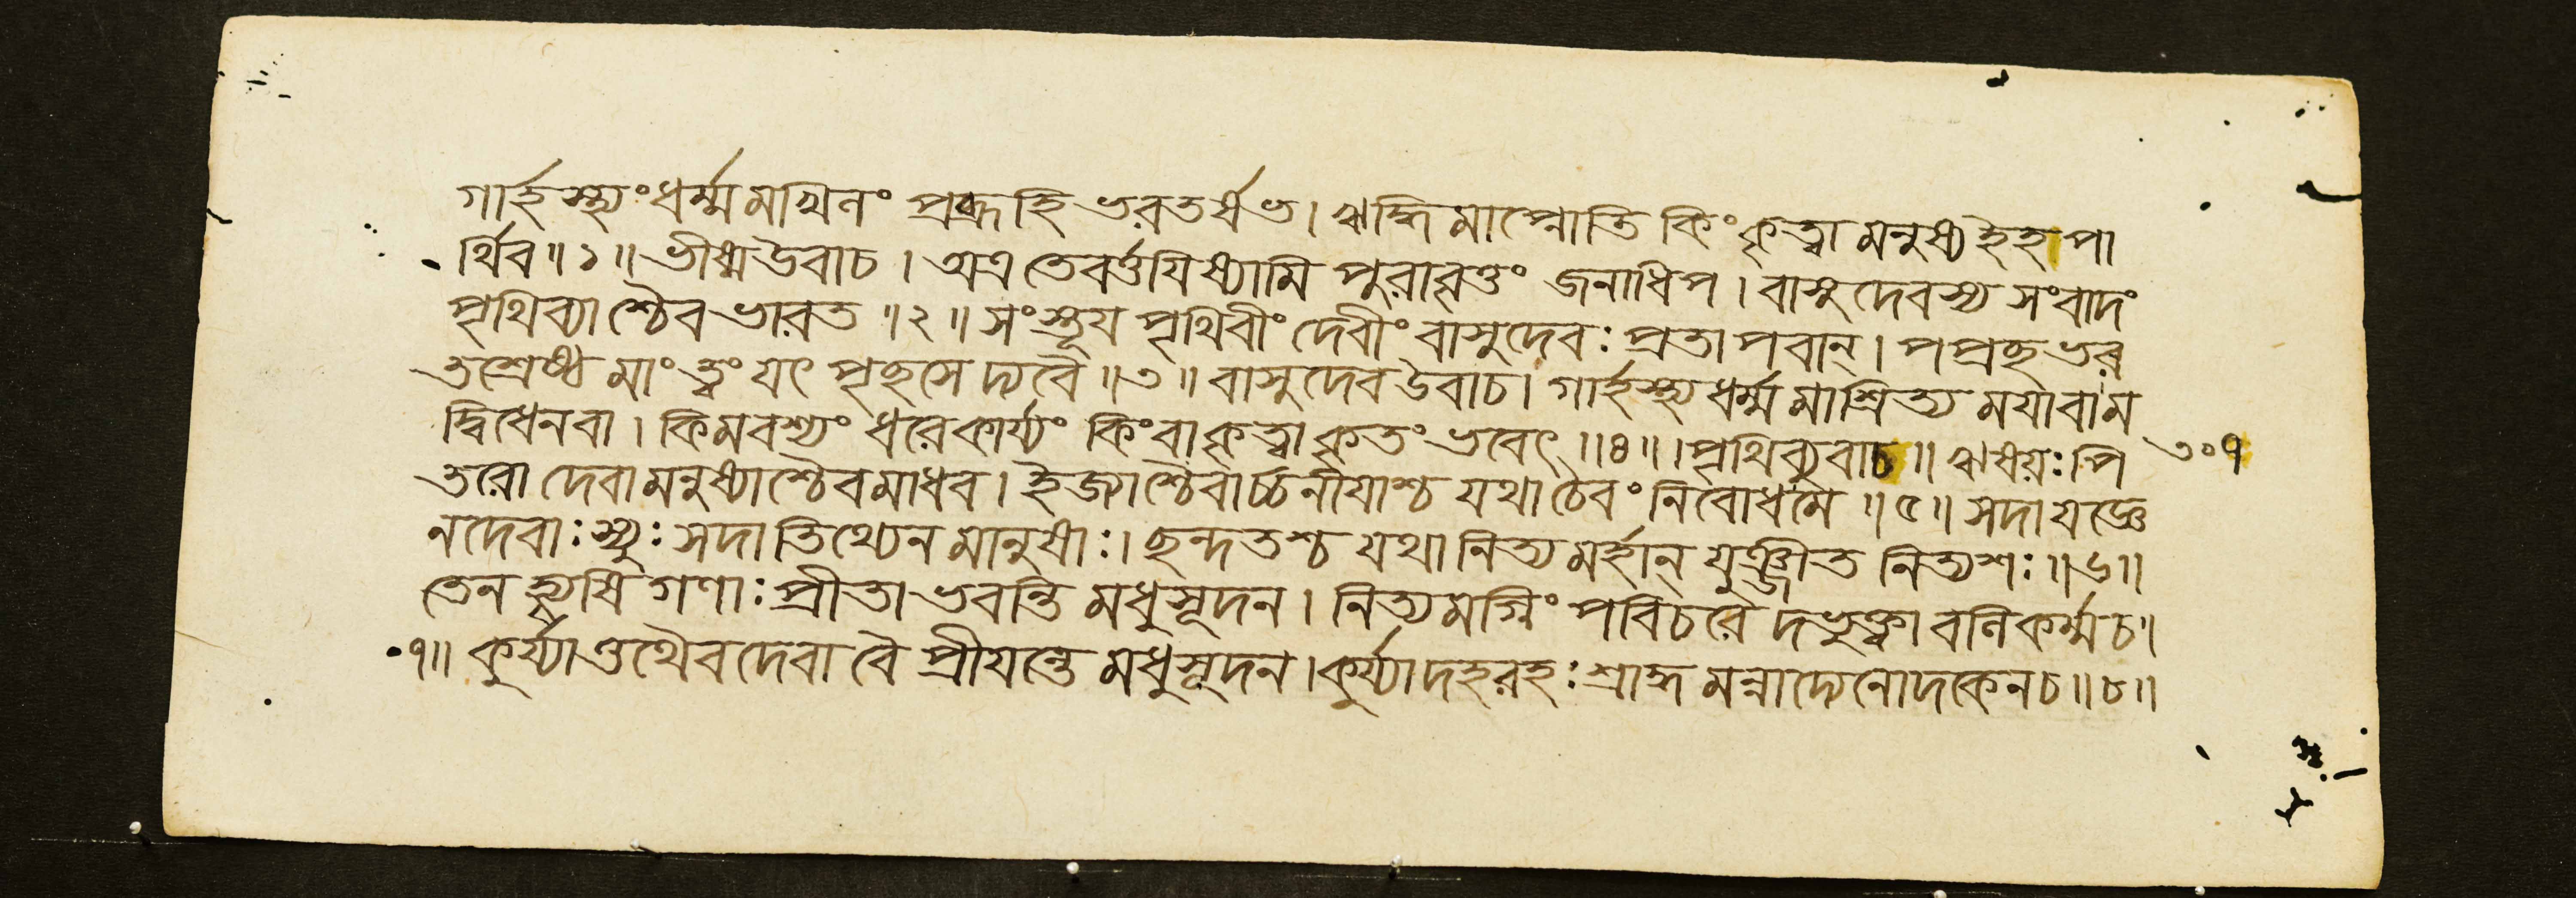 গার্হস্থ্যং ধর্ম্মমখিনং প্রব্রূহি ভরতর্ষভ। ঋদ্ধিমাপ্নোতি কিং কৃত্বা মনুষ্য ইহ পা
র্থিব॥১॥ ভীষ্ম উবাচ। অত্র তে বর্ত্তযিষ্যামি পুরাবৃত্তং জনাধিপ। বাসুদেবস্য সংবাদং
পৃথিব্যাশ্চৈব ভারত॥২॥ সংস্তূয পৃথিবীং দেবীং বাসুদেবঃ প্রতাপবান্। পপ্রচ্ছ ভর
তশ্রেষ্ঠ মাং ত্বং যৎ পৃচ্ছসেদ্যবৈ॥৩॥ বাসুদেব উবাচ। গার্হস্থ্য ধর্ম্মমাশ্রিত্য মযা বা ম
দ্বিধেন বা। কিমবশ্যং ধরে কার্য্যং কিং বা কৃত্বা কৃতং ভবেৎ॥৪॥ পৃথিব্যুবাচ॥ ঋষয়ঃ পি
৩০৭
তরো দেবা মনুষ্যাশ্চৈব মাধব। ইজ্যাশ্চৈবার্চ্চনীযাশ্চ যথা চৈবং নিবোধ মে॥৫॥ সদা যজ্ঞে
ন দেবাঃ স্যুঃ সদাতিথ্যেন মানুষাঃ। ছন্দতশ্চ যথা নিত্যমর্হান্ যুঞ্জীত নিত্যশঃ॥৬॥
তেন হ্যৃষিগণাঃ প্রীতা ভবন্তি মধুসূদন। নিত্যমগ্নিং পবিচরেদভুক্ত্বা বনিকর্ম্ম চ॥
৭॥ কুর্য্যাত্তথৈব দেবা বৈ প্রীযন্তে মধুসূদন। কুর্য্যাদহরহঃ শ্রাদ্ধমন্নাদ্যেনোদকেন চ॥৮॥